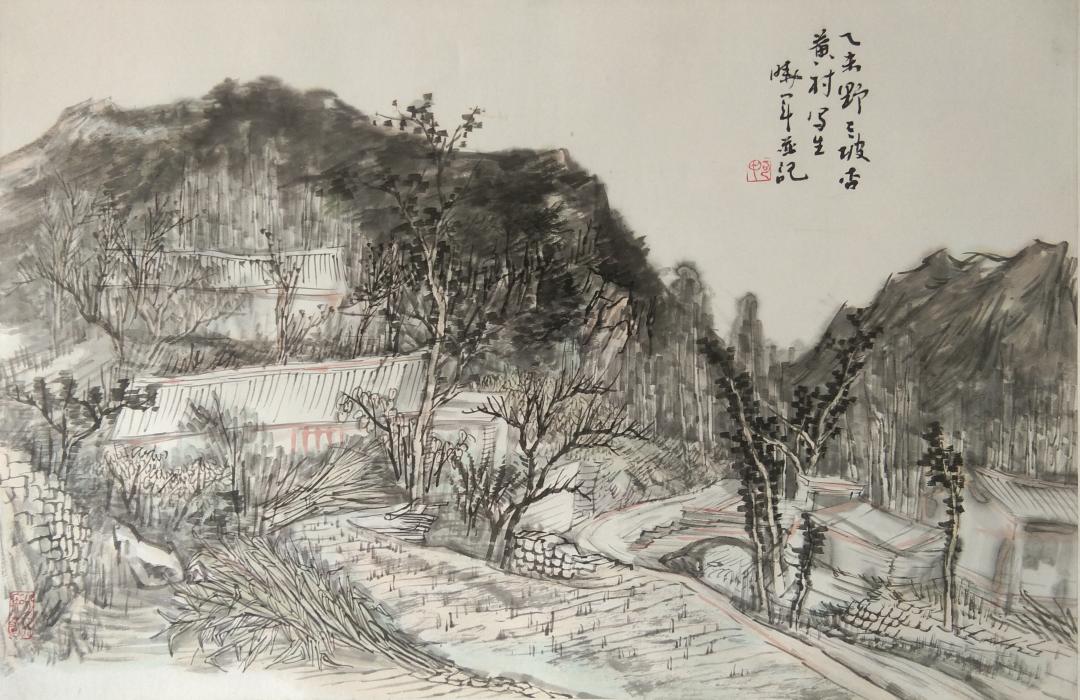 乙未野三坡古
黄村写生
晓军并记